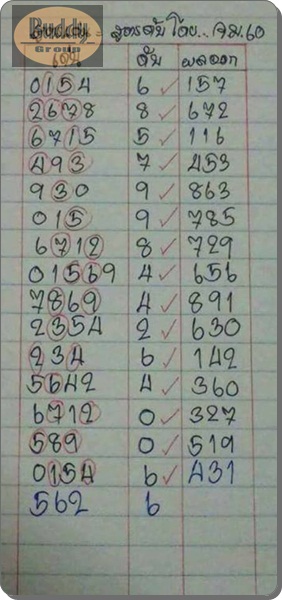 Buddy
Group
= สูตรดับ โดย.. จ.ม.60
เด่น ดับ ผลออก
0154 6 ✓ 157
2678 8 ✓ 672
6715 5 ✓ 116
493 7 ✓ 453
930 9 ✓ 863
015 9 ✓ 785
6712 8 ✓ 729
01569 4 ✓ 656
7869 4 ✓ 891
2354 2 ✓ 630
234 6 ✓ 142
5642 4 ✓ 360
6712 0 ✓ 327
589 0 ✓ 519
0154 6 ✓ 431
562 6